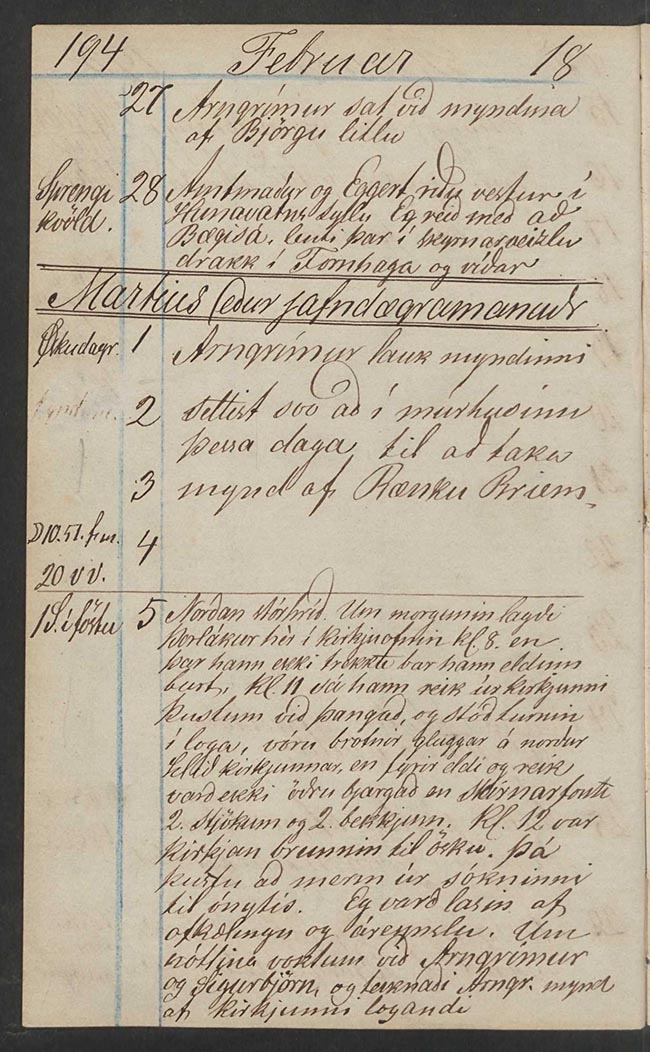 194 Februar 18
27 Arngrímur sat við myndina
af Björgu litlu
Sprengi 28 Amtmaður og Eggert riðu vestur í
kvöld. Húnavatns syllu Eg reið með að
Bægisá, lenti þar í skyrnarveizlu
drakk í Fornhaga og víðar
Martius (eður jafndægramanuðr
Öskudagr. 1 Arngrímur lauk myndinni
2 settist svo að í múrhusinu
þessa daga til að taka
3 mynd af Rænku Briem
10.51. f.m. 4
20 v v.
1 S. í föstu 5 Norðan stórhríð. Um morgunin lagði
Þorlákur hér í kirkjuofnin kl. 8. en
þar hann ekki trekkti bar hann eldinn
burt, kl. 11 sá hann reik úr kirkjunni
þustum við þangað, og stóð turnin
í loga, vóru brotnir gluggar á norður
hlið kirkjunnar, en fyrir eldi og reik
varð ekki öðru bjargað en Skírnarfonti
2. Stjökum og 2. bekkjum. Kl. 12 var
kirkjan brunnin til ösku. Þá
þustu að menn úr sokninni
til ónytis. Eg varð lasin af
ofkælingu og áreynslu. Um
nóttina voktum við Arngrímur
og Sigurbjörn, og teiknaði Arngr. mynd
af kirkjunni logandi